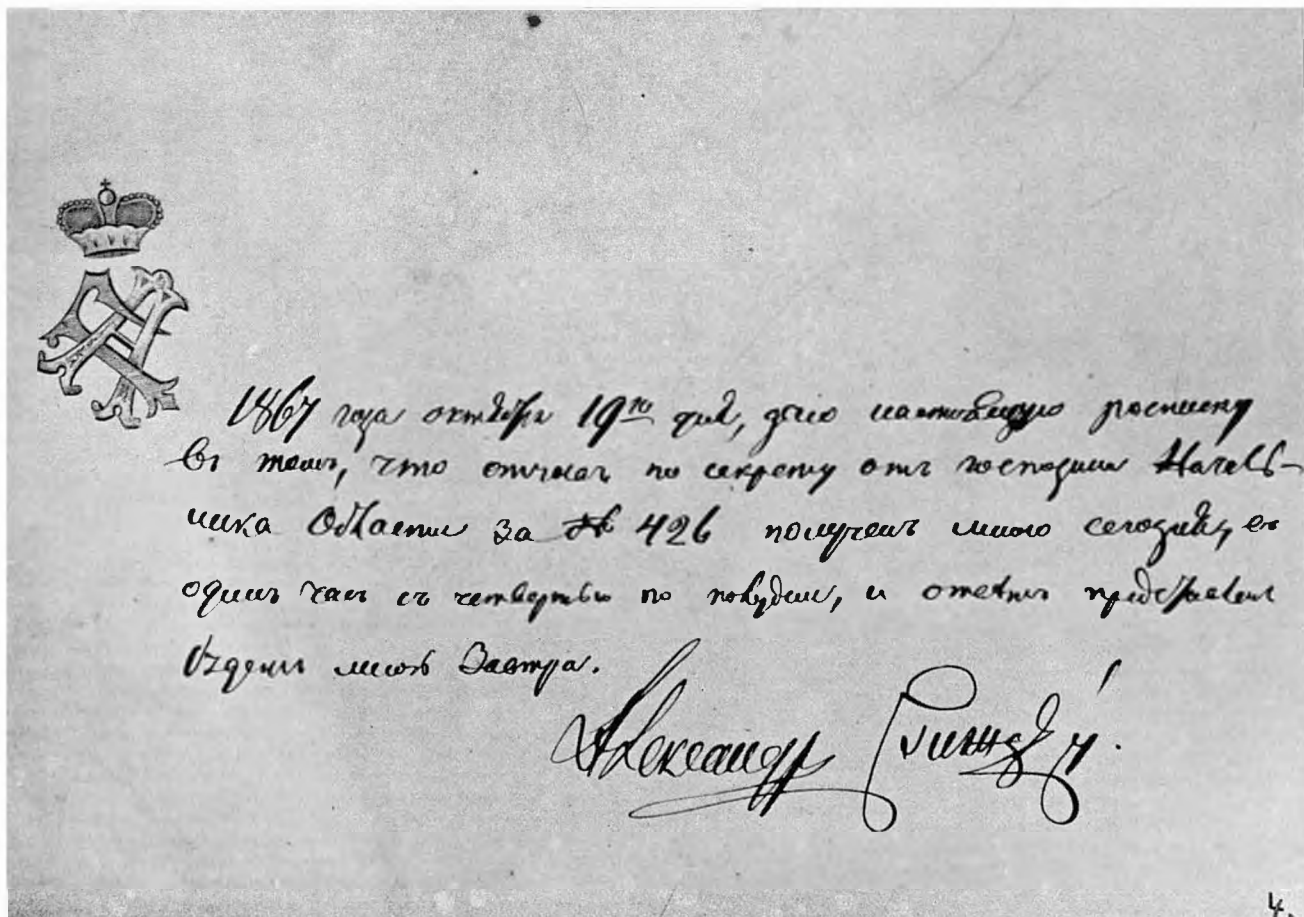 1867 года октября 19го дня, даю настоящую росписку
въ томъ, что отпускъ по секрету отъ господина Началь-
ника Области за № 426 полученъ мною сегодня, въ
одинъ часъ съ четвертью по полудни, и ответъ представленъ
будетъ мною завтра.
Александр
4.